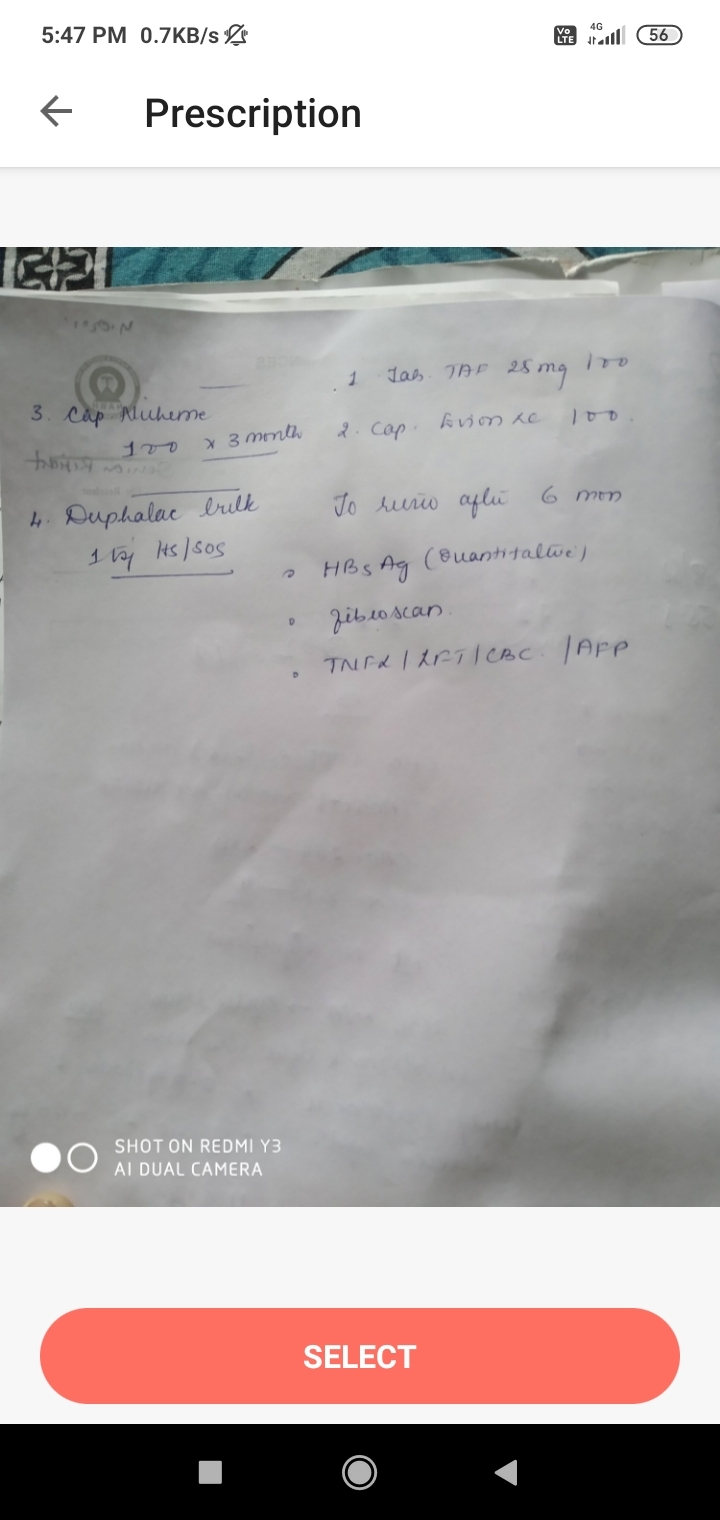 5:47 PM 0.7KB/s VoLTE 4G 56
Prescription
1 Tab. TAF 25 mg 100
2. Cap. Evion LC 100.
3. Cap Nuheme
100 x 3 month
4. Duphalac bulk
1 HS/SOS
To after 6 mon
HBsAg (Quantitative)
fibroscan.
TNFα / LFT / CBC. / AFP
SHOT ON REDMI Y3
AI DUAL CAMERA
SELECT